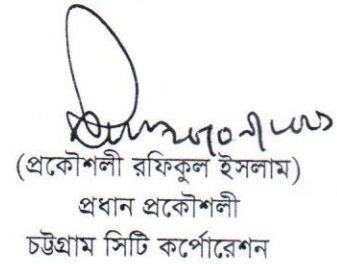 (প্রকৌশলী রফিকুল ইসলাম)
প্রধান প্রকৌশলী
চট্টগ্রাম সিটি কর্পোরেশন